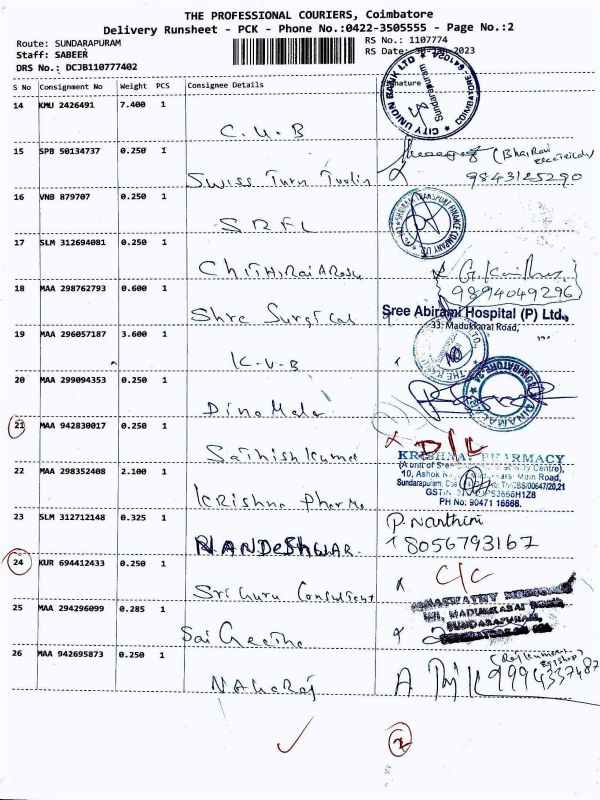 THE PROFESSIONAL COURIERS, Coimbatore
Delivery Runsheet - PCK - Phone No.:0422-3505555 - Page No.:2
Route: SUNDARAPURAM
RS No.: 1107774
Staff: SABEER
RS Date: 2023
DRS No.: DCJB110777402
S No Consignment No Weight PCS Consignee Details Signature
14 KMU 2426491 7.400 1
C.U.B
CITY UNION BANK LTD
Sundarapuram
15 SPB 50134737 0.250 1
Swiss Turn Toolin
(Bhairavi
9843125290
16 VNB 879707 0.250 1
SRFL
17 SLM 312694081 0.250 1
Chithirai Arasu
9894049296
18 MAA 298762793 0.600 1
Shre Surgical
Sree Abirami Hospital (P) Ltd.,
33, Madukkarai Road,
19 MAA 296057187 3.600 1
K.V.B
20 MAA 299094353 0.250 1
DinaMala
21 MAA 942830017 0.250 1
Sathish Kumar
D/L
KRISHNA PHARMACY
22 MAA 298352408 2.100 1
Krishna Pharma
10, Ashok
Main Road,
Sundarapuram,
PH No: 90471 16666.
23 SLM 312712148 0.325 1
NANDESHWAR
P. Nanthini
8056793167
24 KUR 694412433 0.250 1
Sri Guru Consultent
C/C
25 MAA 294296099 0.285 1
Sai Geetha
SUNDARAPURAM,
26 MAA 942695873 0.250 1
NAhaRaj
9994337487